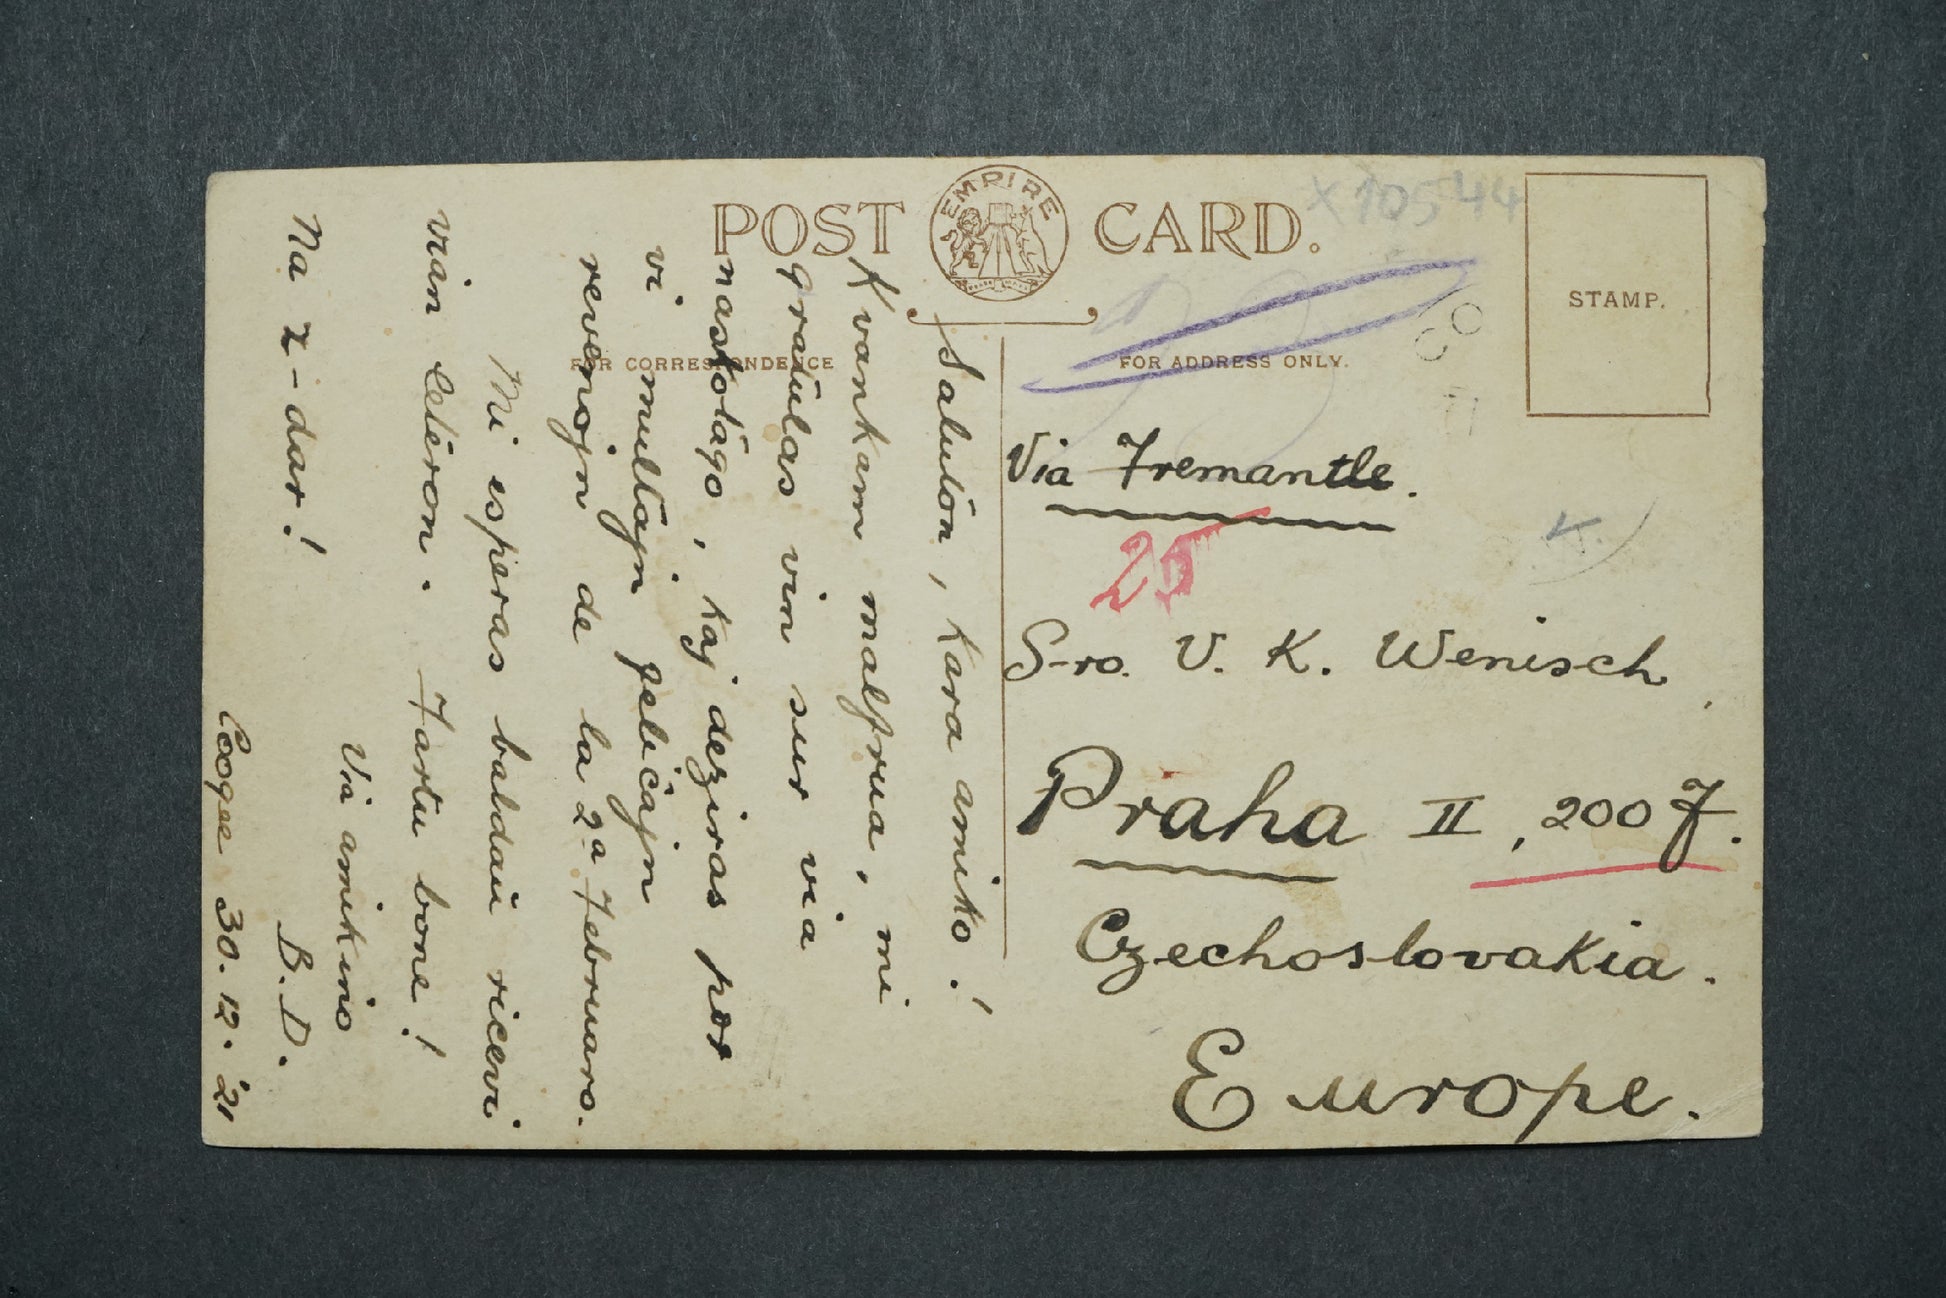 POST CARD.
EMPIRE
X10544
STAMP.
FOR CORRESPONDENCE
FOR ADDRESS ONLY.
Saluton, kara amiko!
Kvankam malfrua, mi
gratulas vin sur via
naskotago, kaj deziras por
vi multajn feliĉajn
revenojn de la 2ª Februaro.
Mi esperas baldaŭ ricevi
vian leteron. Fartu bone!
Via amikino
Na z-dar! B. D.
Coogee 30. 12. '21
Via Fremantle.
25
K.
S-ro. V. K. Wenisch
Praha II, 200 J.
Czechoslovakia.
Europe.